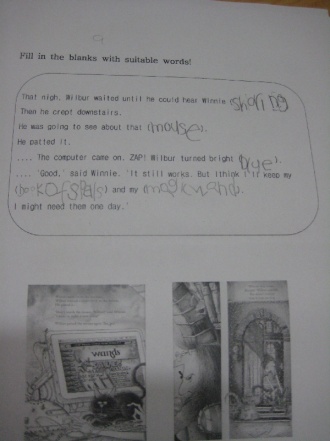 Fill in the blanks with suitable words!
That nigh, Wilbur waited until he could hear Winnie (shoring
Then he crept downstairs.
He was going to see about that (mouse).
He patted it.
.... The computer came on. ZAP! Wilbur turned bright (blue).
.... 'Good,' said Winnie. 'It still works. But Ithink I'll keep my
(book of spells) and my (magic wand).
I might need them one day.'